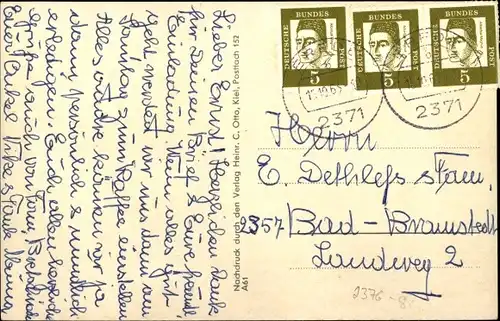 Lieber Ernst! Herzlichen Dank
für Deinen Brief & Eure freundl.
Einladung. Wenn alles gut
geht werden wir uns dann am
Sonntag zum Kaffee einstellen
Alles andre können wir ja
dann persönlich & mündlich
erledigen. Euch allen herzliche
Grüße auch von Tom,
Euer Onkel & Tante
Nachdruck durch den Verlag Heinr. C. Otto, Kiel, Postfach 152
A61
DEUTSCHE BUNDESPOST 5
DEUTSCHE BUNDESPOST 5
DEUTSCHE BUNDESPOST 5
2371
2371
Herrn
E. Dethlefs
2357 Bad-Bramstedt
Landweg 2
2376